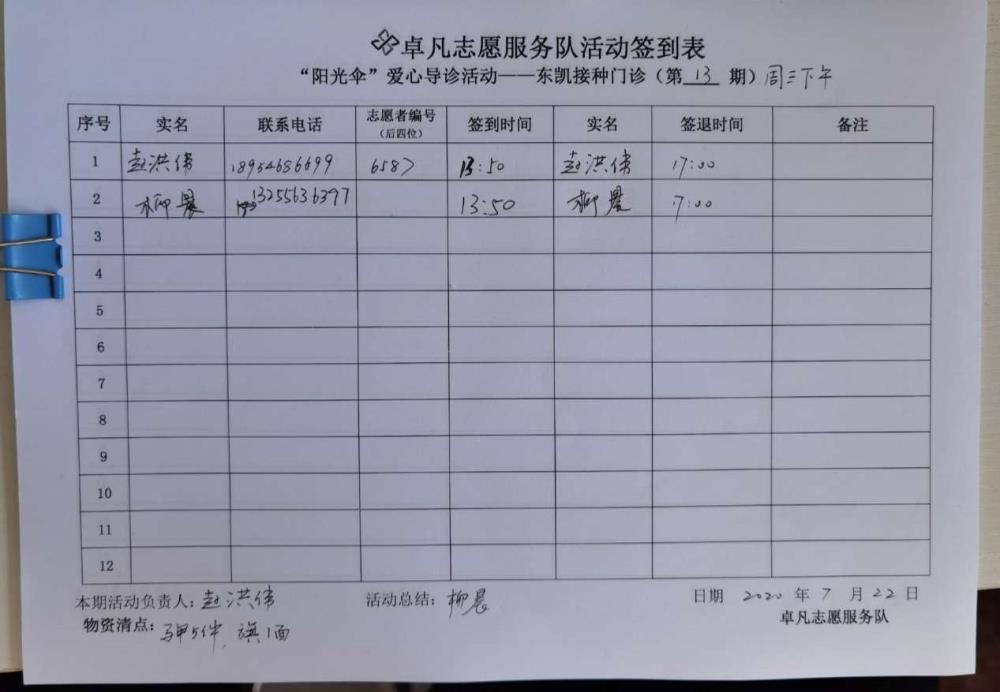 卓凡志愿服务队活动签到表
“阳光伞”爱心导诊活动——东凯接种门诊（第 13 期）周三下午
序号 实名 联系电话 志愿者编号（后四位） 签到时间 实名 签退时间 备注
1 赵洪伟 18954686699 6587 13:50 赵洪伟 17:00
2 柳晨 13255636397 13:50 柳晨 17:00
3
4
5
6
7
8
9
10
11
12
本期活动负责人：赵洪伟 活动总结：柳晨 日期 2020 年 7 月 22 日
物资清点：马甲5件，旗1面 卓凡志愿服务队